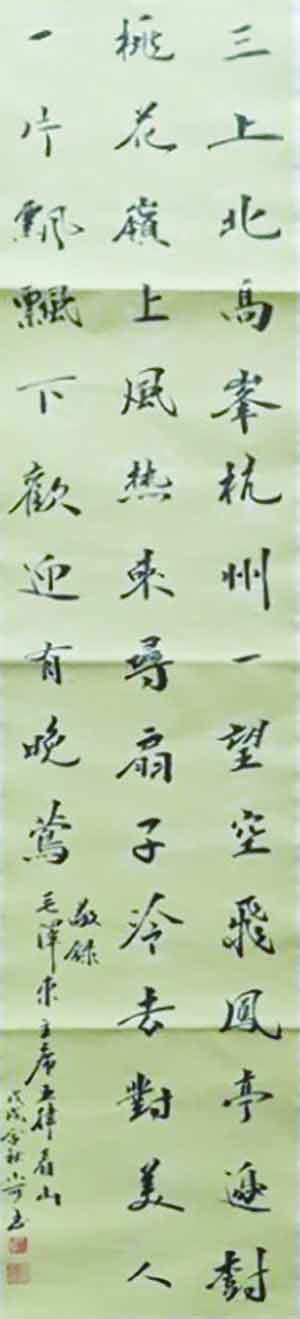 三上北高峯杭州一望空飛鳳亭邊樹
桃花嶺上風热來尋扇子冷去對美人
一片飄飄下歡迎有晚鶯
敬錄
毛澤東主席五律看山
戊戌金秋